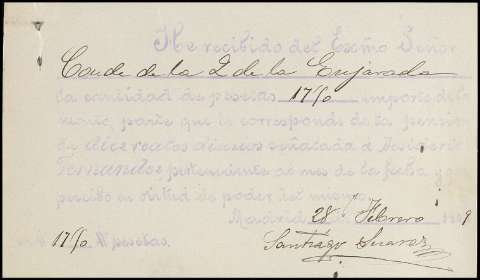 He recibido del Exmo Señor
Conde de la Q de la Enjarada
la cantidad de pesetas 17/50 importe de la
parte que le corresponde de la pension
de diez reales diarios señalada á
Fernandez perteneciente al mes de la fecha y que
percibo en virtud de poder del mismo.
Madrid 28 Febrero 9
17/50 pesetas.
Santiago Suarez